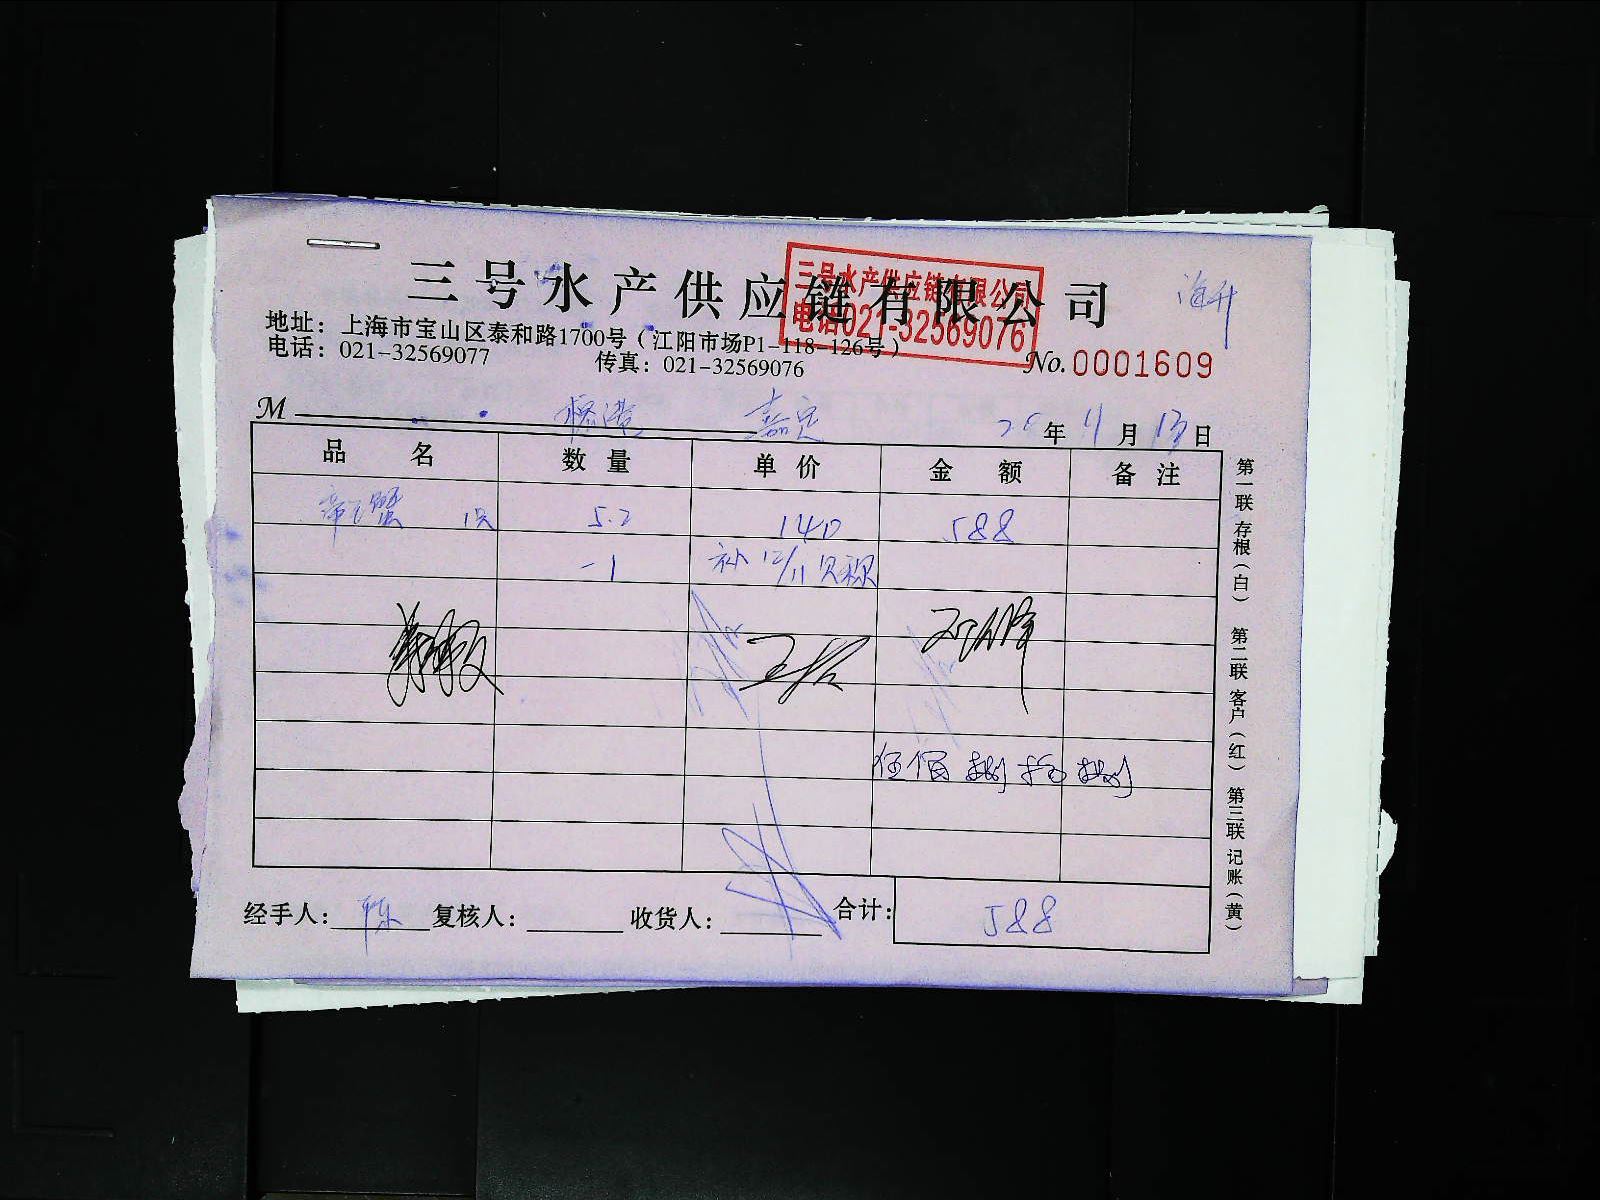 三号水产供应链有限公司
三号水产供应链有限公司
电话021-32569076
地址：上海市宝山区泰和路1700号（江阳市场P1-118-126号）
电话：021-32569077 传真：021-32569076
No. 0001609
M 嘉定 20年11月13日
品名 数量 单价 金额 备注
帝王蟹 1只 5.2 140 588
-1 补12/11
伍佰捌拾捌
经手人： 陈 复核人： 收货人： 合计： 588
第一联存根（白） 第二联客户（红） 第三联记账（黄）